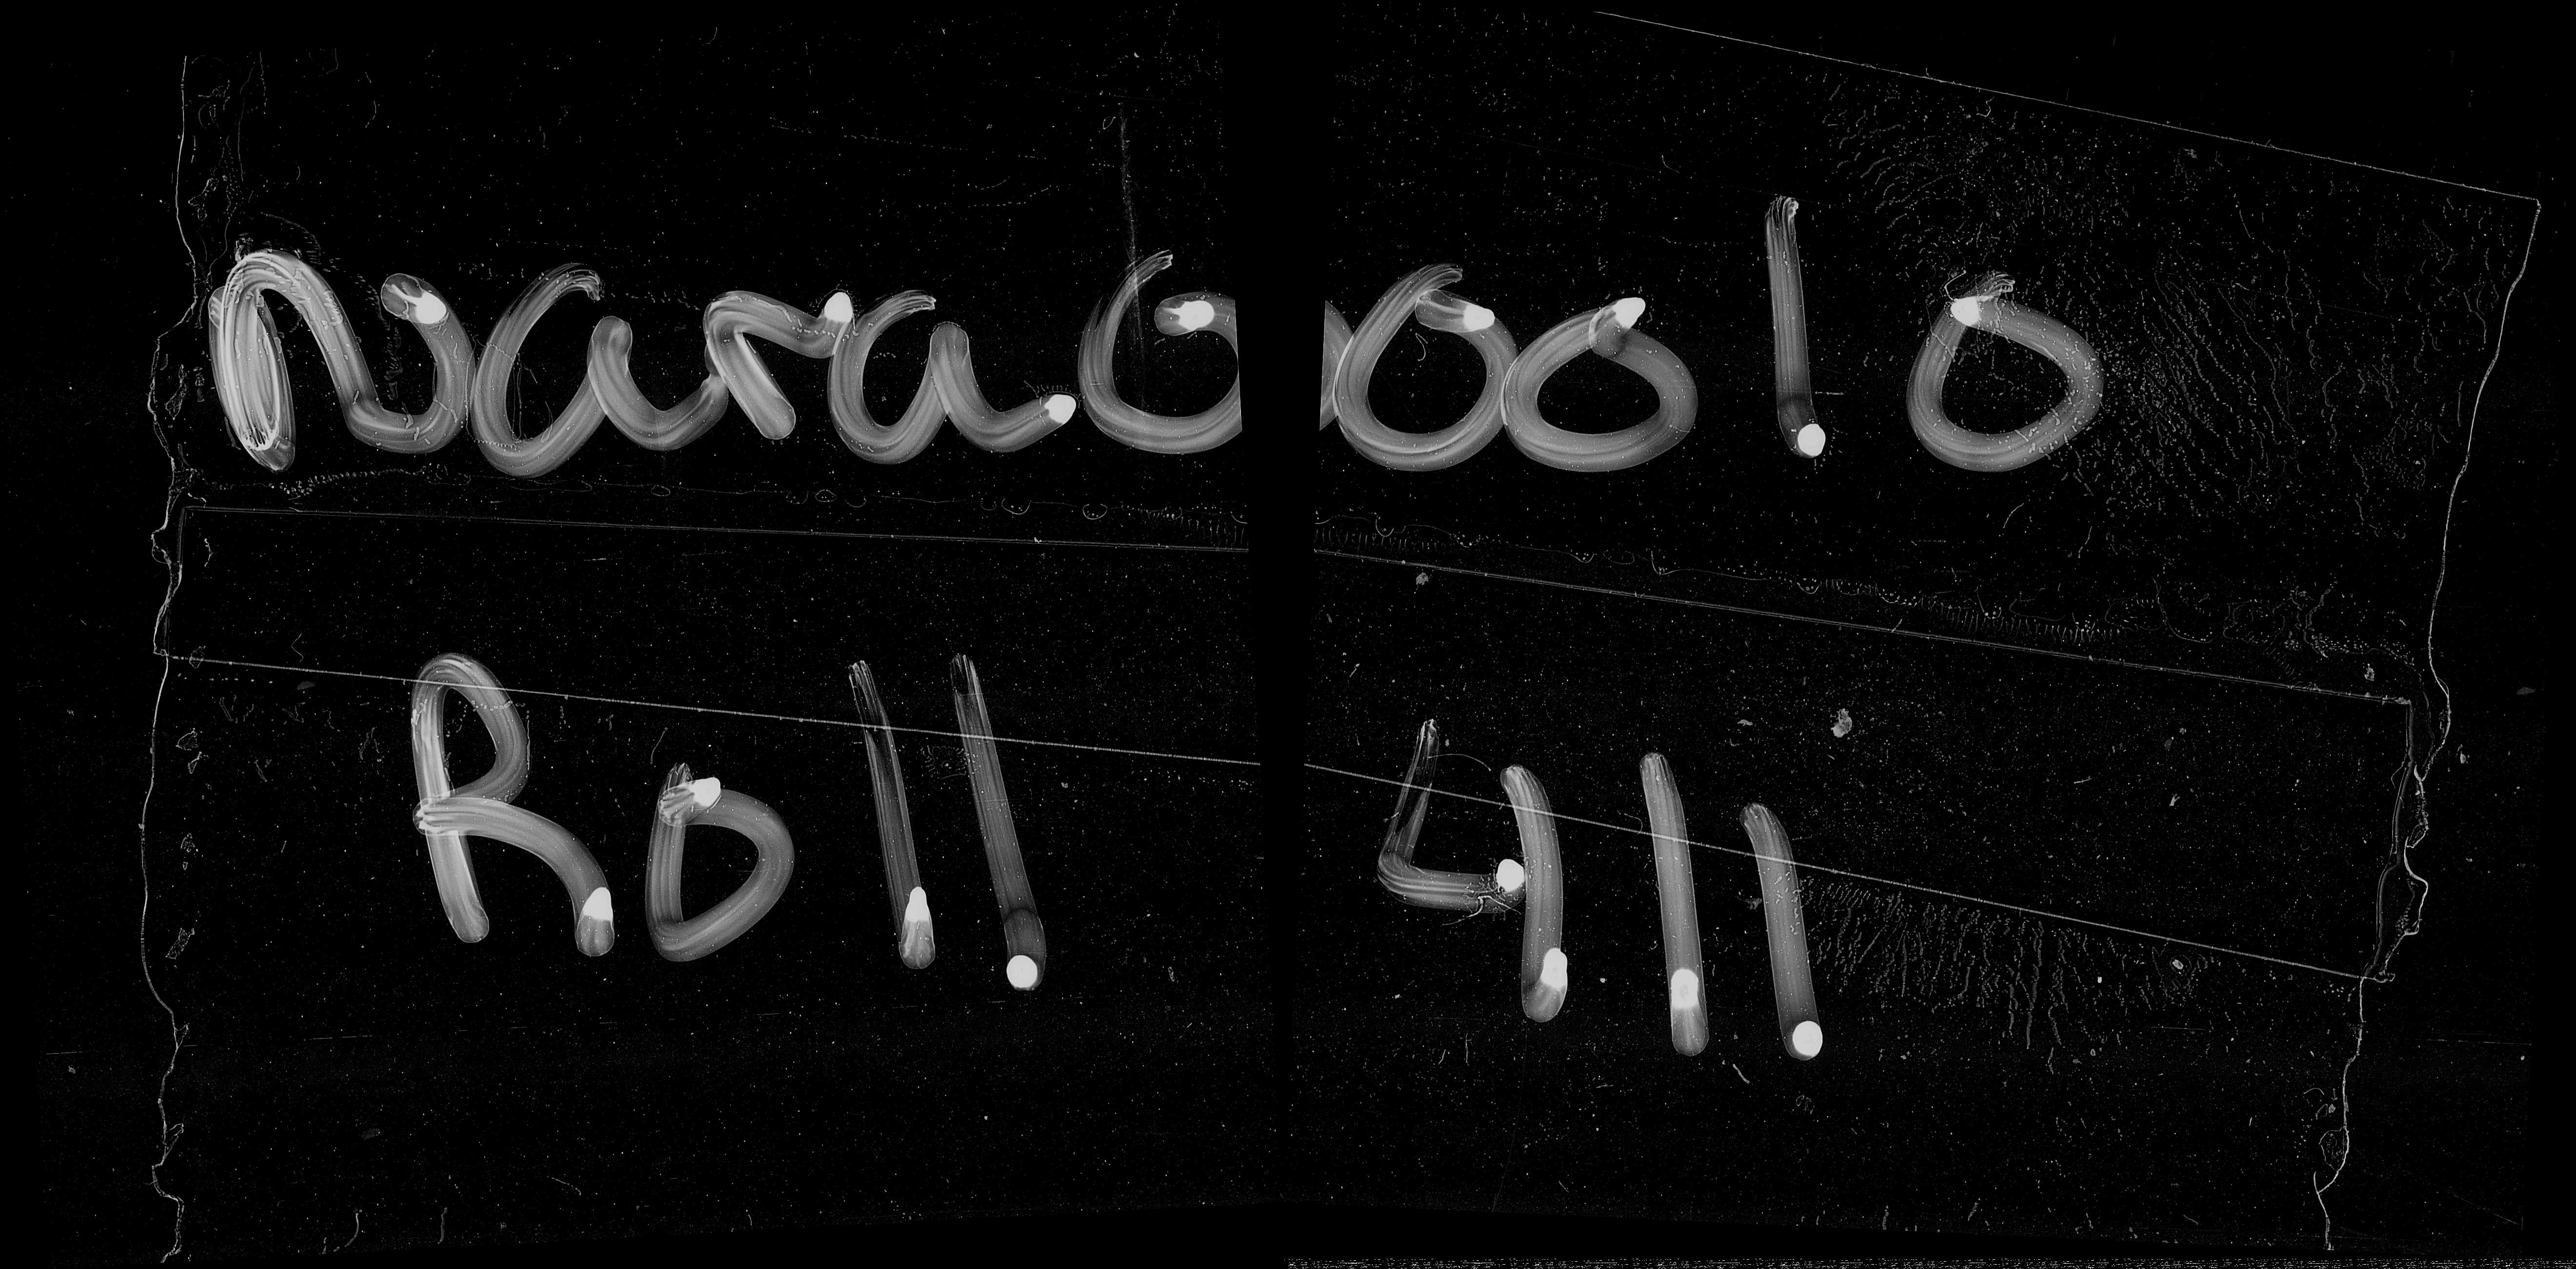 Nara 00010
Roll 411